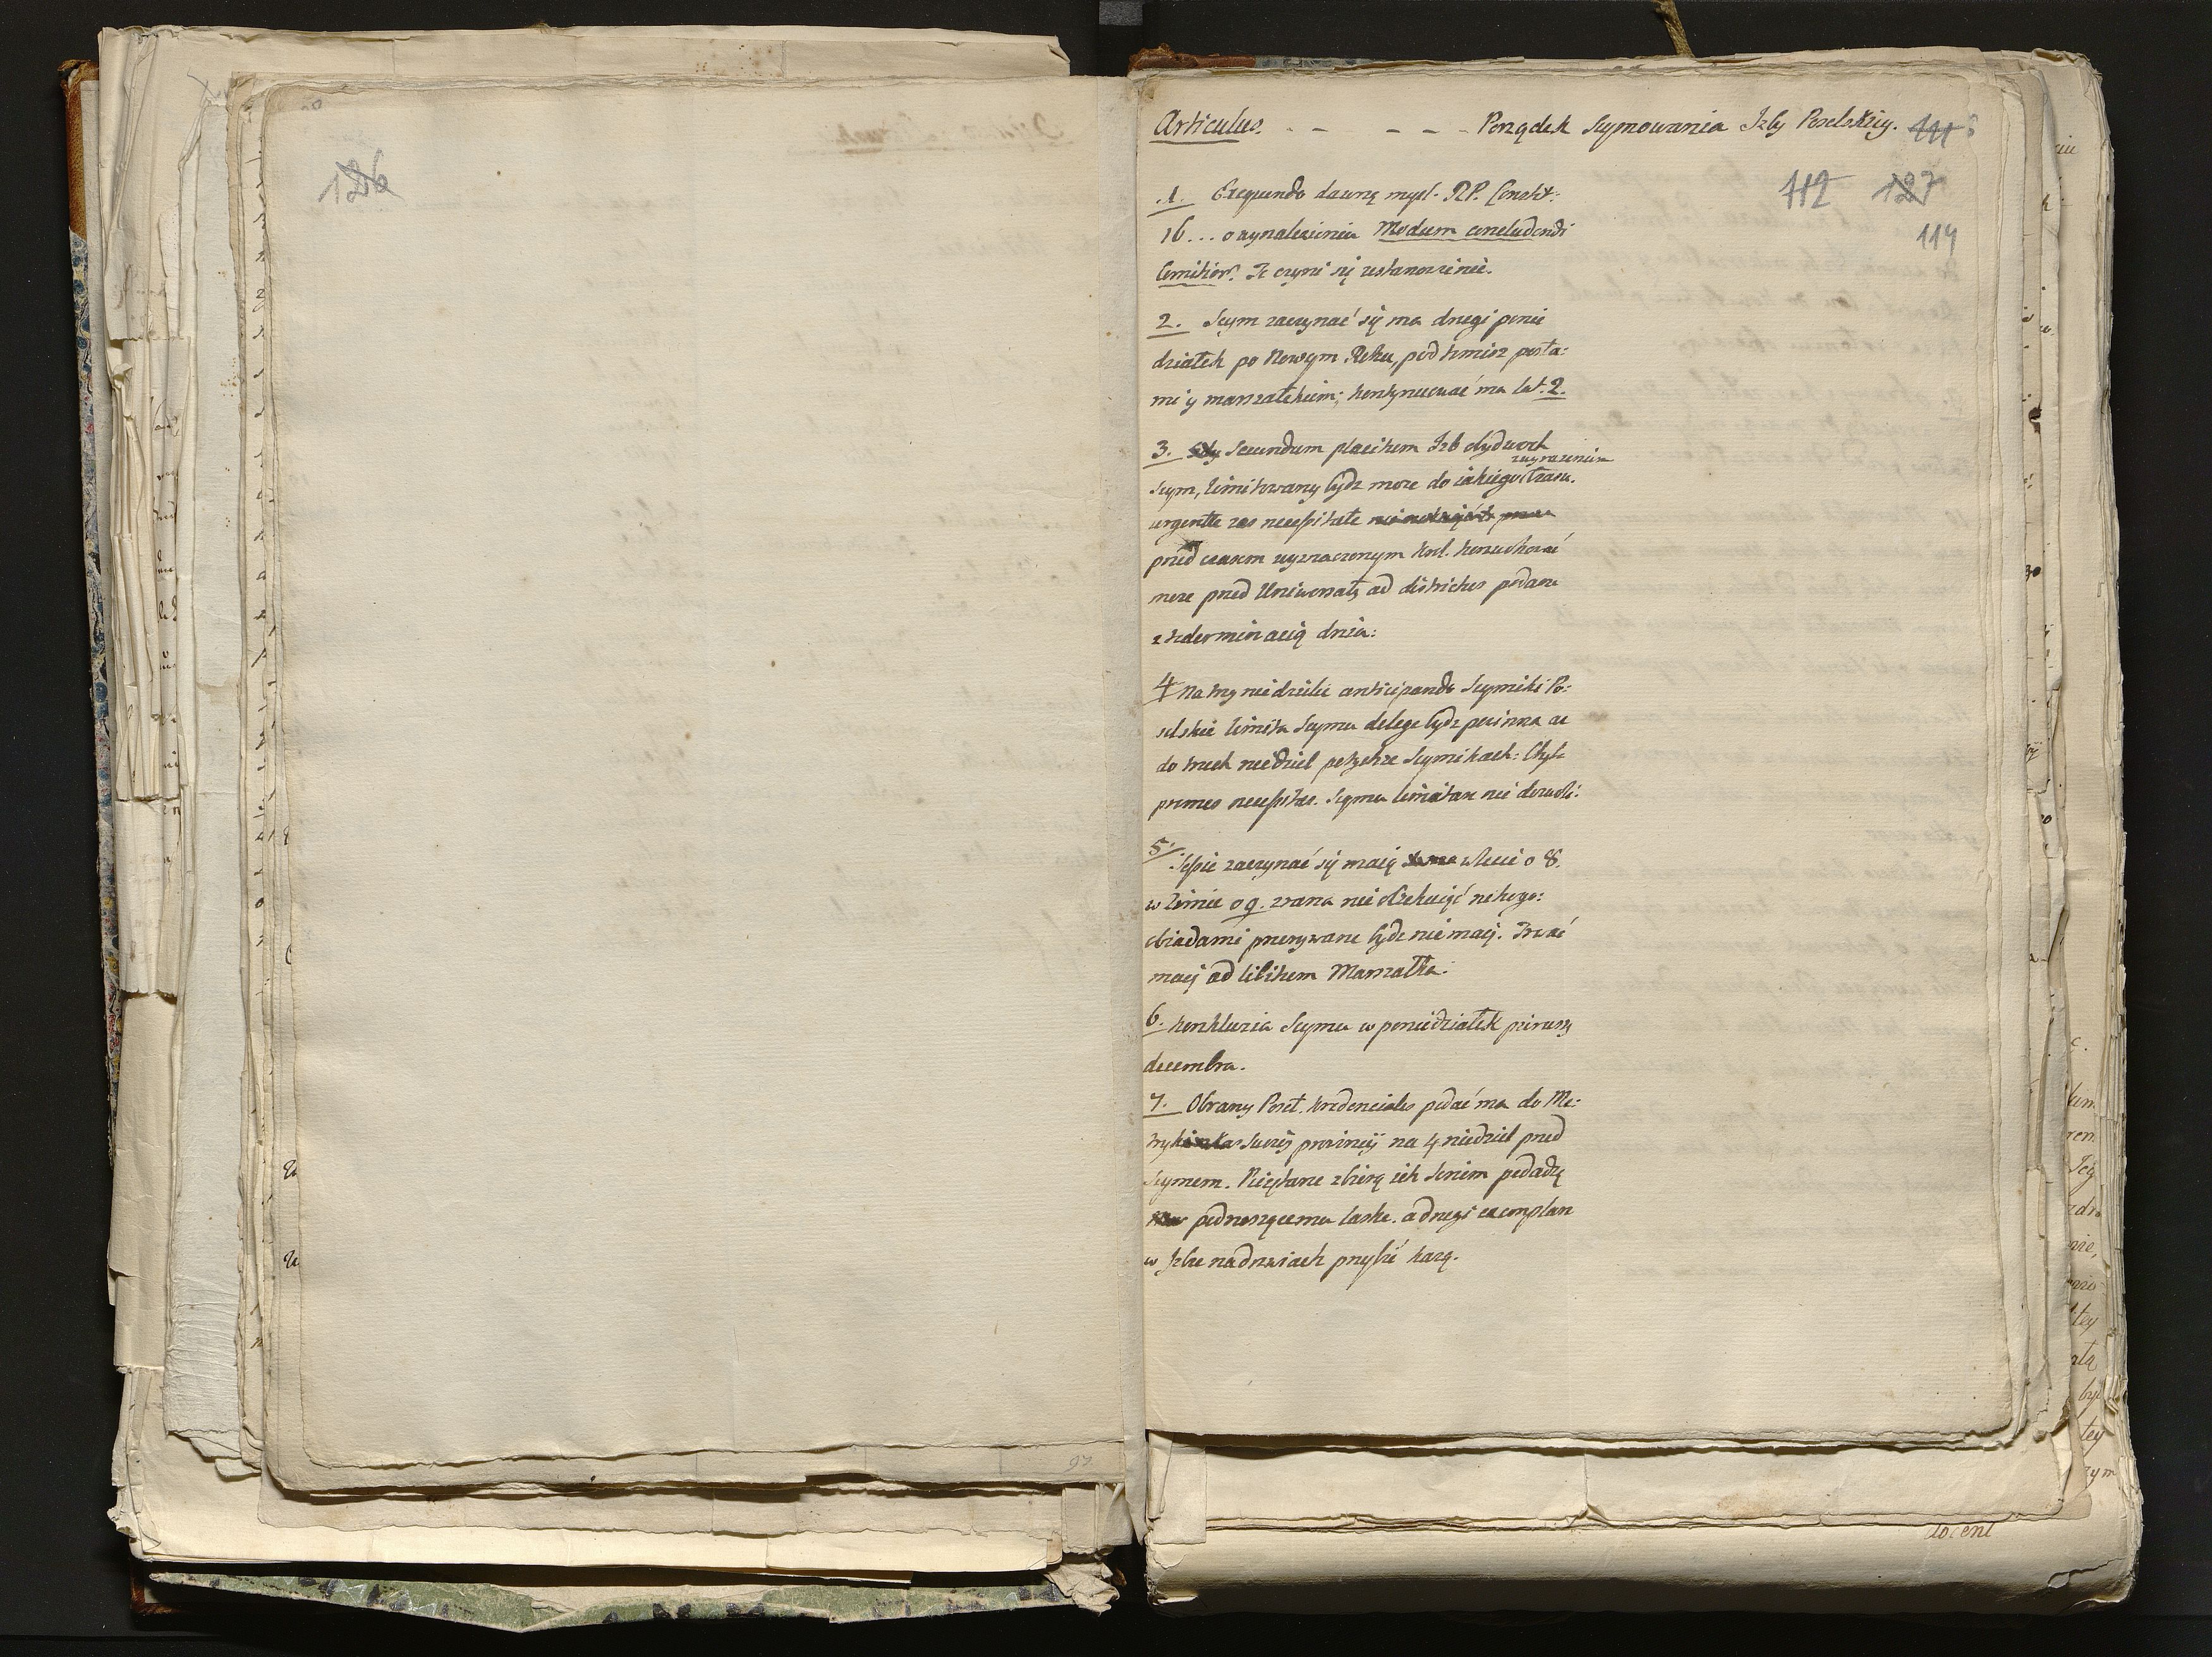 126
Articulus. - - - - - Porządek Seymowania Izby Poselskiey. 111
112 127
119
1. Exequendo dawną myśl RP. Constit:
16... o wynalezieniu Modum concludendi
Comitior. Te czyni się ustanowienie.
2. Seym zaczynać się ma drugi ponie
działek po Nowym Roku, pod temisz posła:
mi y marszałkiem; kontynuować ma lat. 2.
3. Secundum placitum Izb obydwoch
wyrażeniem
Seym, limitowany bydz może do iakiego czasu.
urgente zas necessitate
przed czasem wyznaczonym Krol. konwokować
może przed Uniwersały ad districtus podane
z determinacią dnia:
4 Na trzy niedziele anticipando Seymiki Po:
selskie limita Seymu de lege bydz powinna ac
do trzech niedziel po Seymikach: Chyba
necessitas. Seymu limitare nie dozwoli:
5. Sessie zaczynać się maią w lecie o 8.
w zimie o 9. zrana nie oczekuiąc nikogo:
obiadami przerywane bydz nie maią. Trwać
maią ad libitum Marszałka.
6. Konkluzia Seymu w poniedziałek pierwszy
decembra.
7. Obrany Poseł. kredenciales podać ma do Me:
tryki swoiey prowincij na 4 niedziel przed
Seymem. zbiorą ich podadzą
podnoszącemu laskę. a drugi exemplarz
w Izbie na drzwiach przybić każą.
92
docent